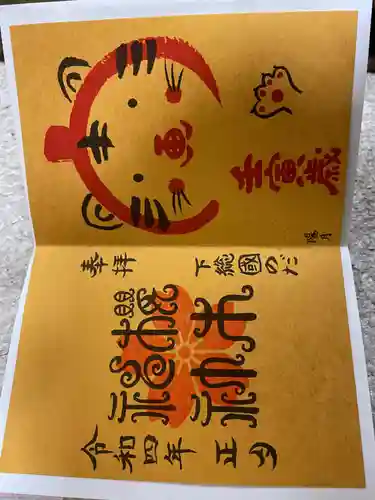 寅
壬寅歳
陽月
奉拝
下総國のだ
櫻木神社
令和四年 正月